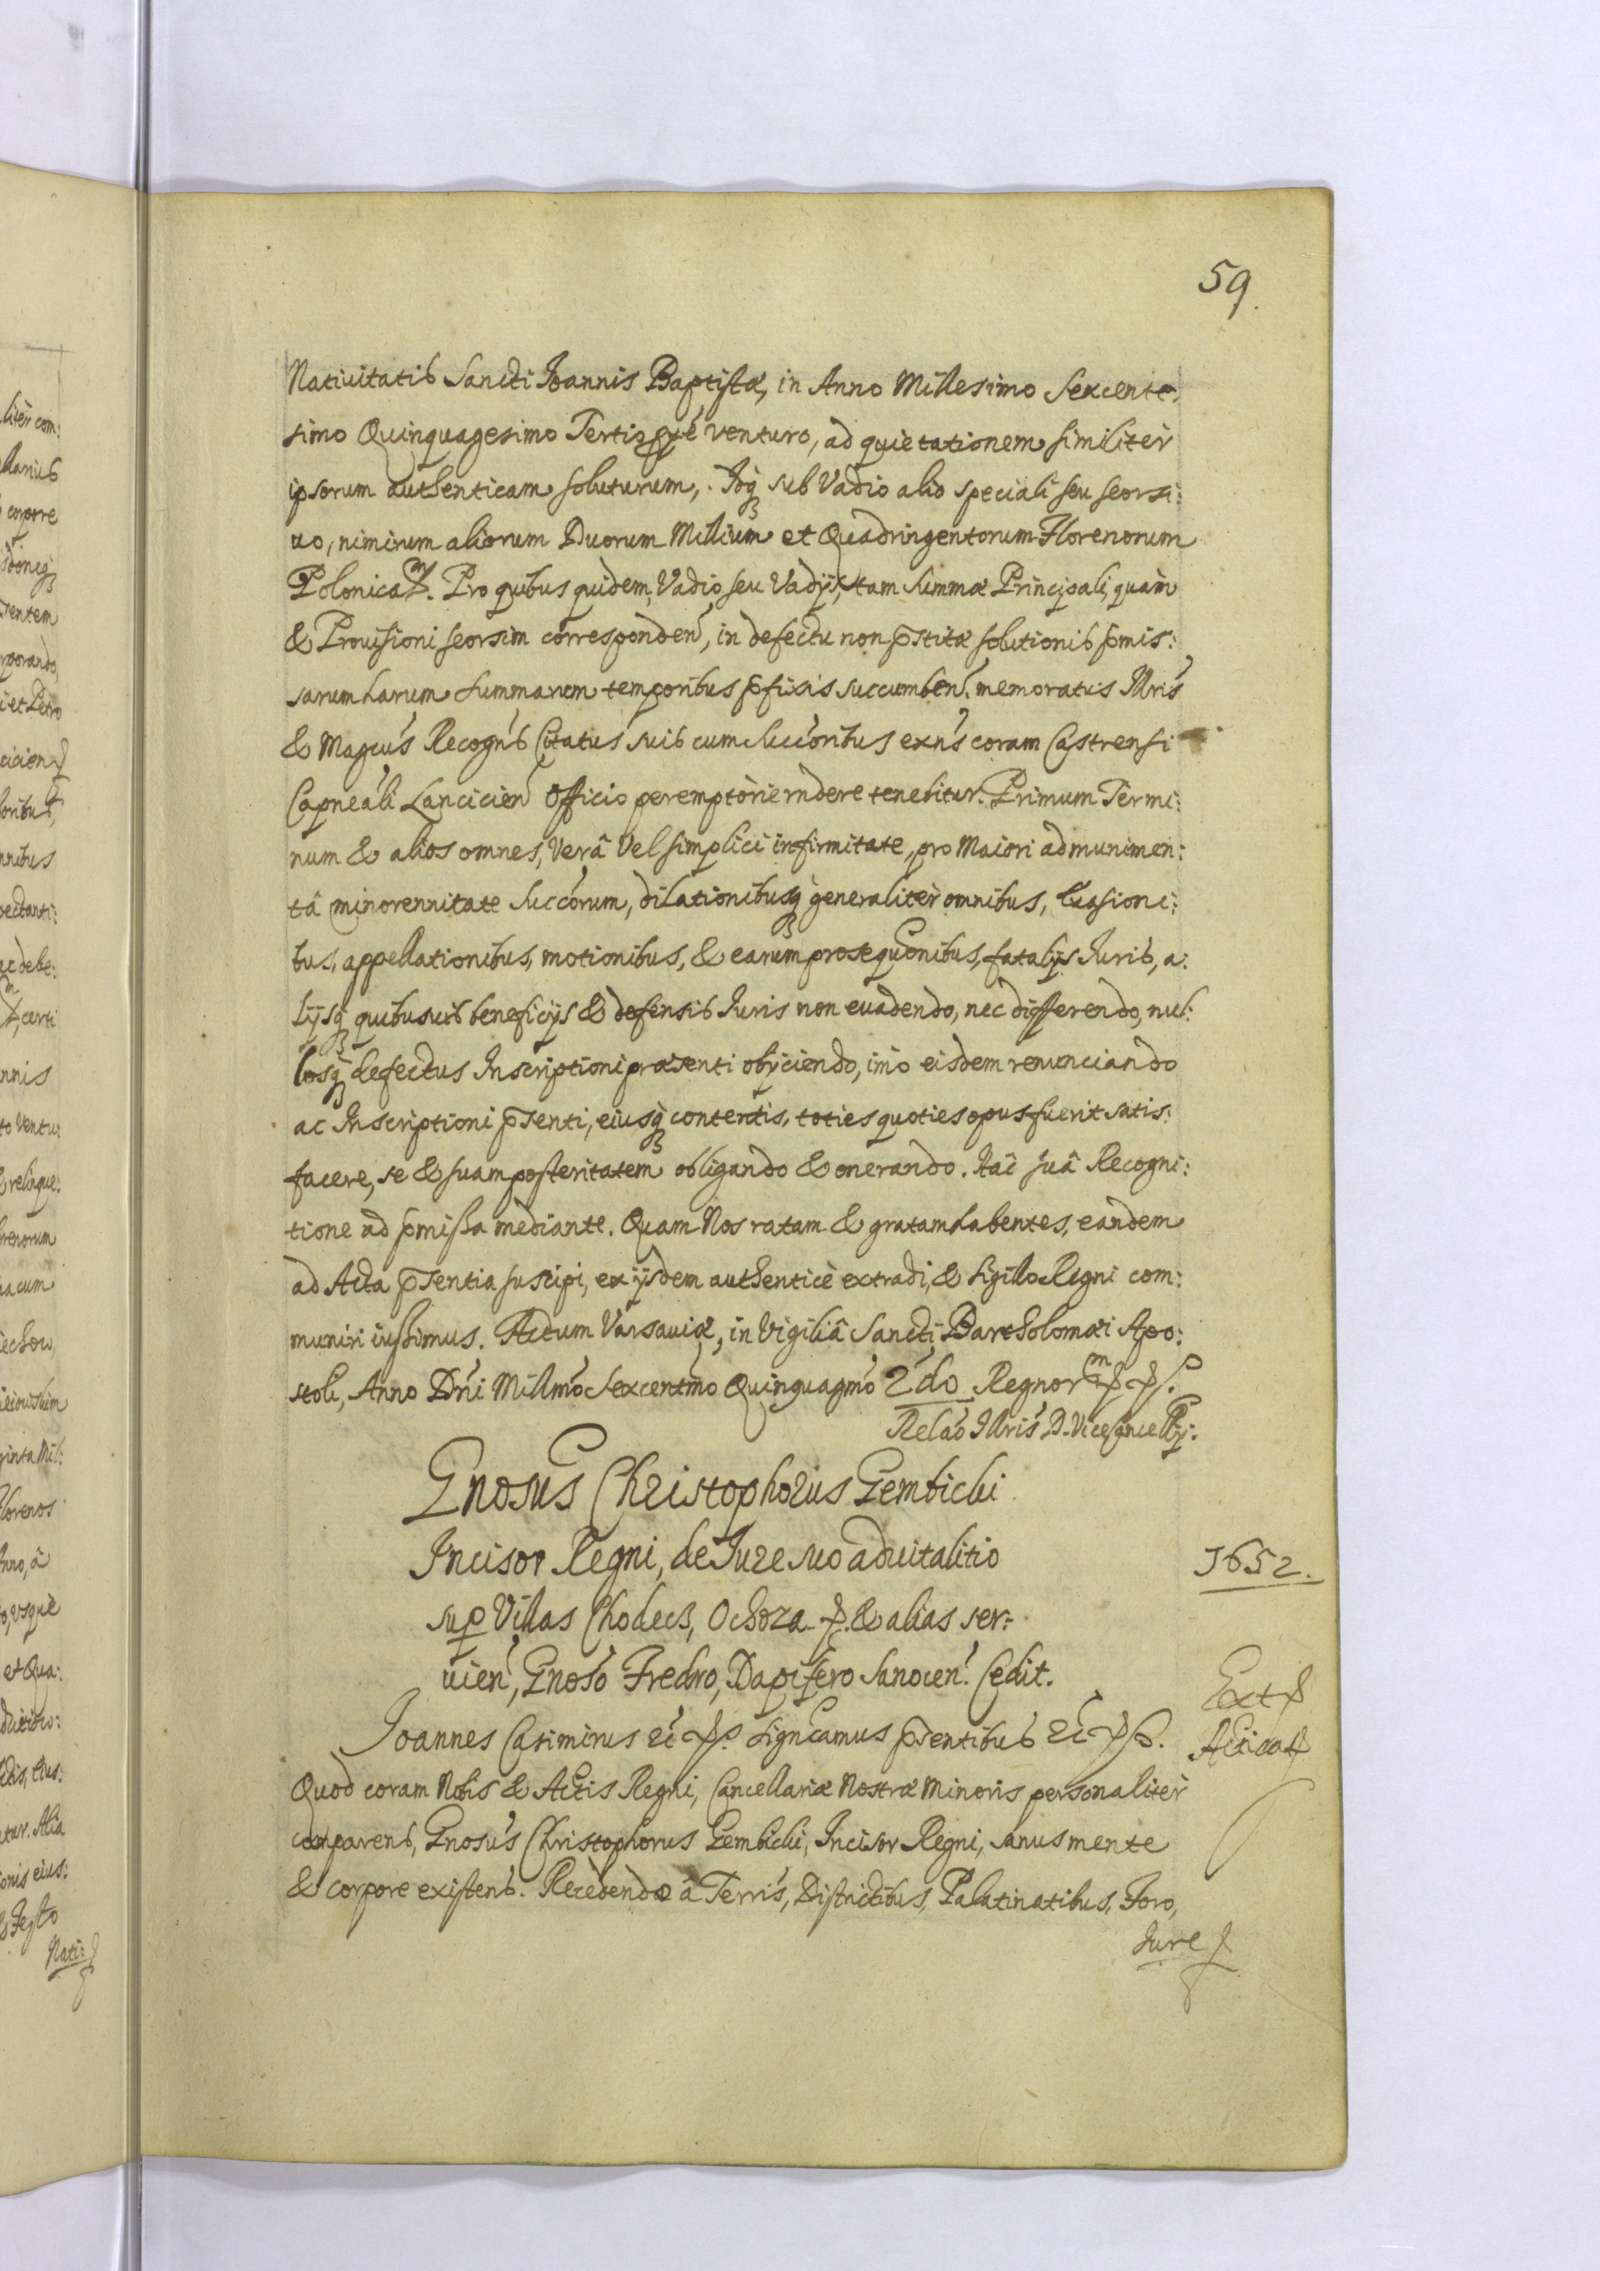 59.
Nativitatis Sancti Joannis Baptistæ, in Anno Millesimo Sexcente:
simo Quinquagesimo Tertio pxe venturo, ad quietationem similiter
ipsorum authenticam soluturum, Idq; sub Vadio alio speciali seu seorsi:
uo, nimirum aliorum Duorum Millium et Quadringentorum Florenorum
Polonical. Pro quibus quidem, Vadio seu Vadijs, tam summæ Principali, quàm
& Prouisioni seorsim corresponden, in defectu non pstitæ solutionis pmis:
sarum harum summarum temporibus pfixis succumben. memoratus Illris
& Magcus Recogns Citatus suis cum succoribus exns coram Castrensi
Capneali Lancicien Officio peremptorie rndere tenebitur. Primum Termi:
num & alios omnes, Verâ Vel simplici infirmitate, pro Maiori ad munimen:
tâ minorennitate succorum, dilationibusq; generaliter omnibus, Euasioni:
bus, appellationibus, motionibus, & earum prosequonibus, fatalijs Iuris, a:
lijsq; quibusuis beneficijs & defensis Iuris non euadendo, nec differendo, nul:
losq; defectus Inscriptioni præsenti obijciendo, imò eisdem renunciando
ac Inscriptioni psenti, eiusq; contentis, toties quoties opus fuerit satis:
facere, se & suam posteritatem obligando & onerando. Hac suâ Recogni:
tione ad pmissa mediante. Quam Nos ratam & gratam habentes, eandem
ad Acta psentia suscipi, ex ijsdem authenticè extradi, & Sigillo Regni com:
muniri iussimus. Actum Varsauiæ, in Vigiliâ Sancti Bartholomæi Apo:
stoli, Anno Dni Millmo Sexcentmo Quinquagmo 2do Regnor
Relao Illris D. Vicecancellrij.
Gnosus Christophorus Gembicki
Incisor Regni, de Iure suo aduitalitio
1652.
sup Villas Chodecz, Ochoza & alias ser:
uien, Gnoso Fredro, Dapifero Sanocen. Cedit.
Ext
Joannes Casimirus etc Significamus psentibus etc
Quod coram Nobis & Actis Regni, Cancellariæ Nostræ Minoris personaliter
comparens, Gnosus Christophorus Gembicki, Incisor Regni, sanus mente
& corpore existens. Recedendo à Terris, Districtibus, Palatinatibus, Foro,
Iure